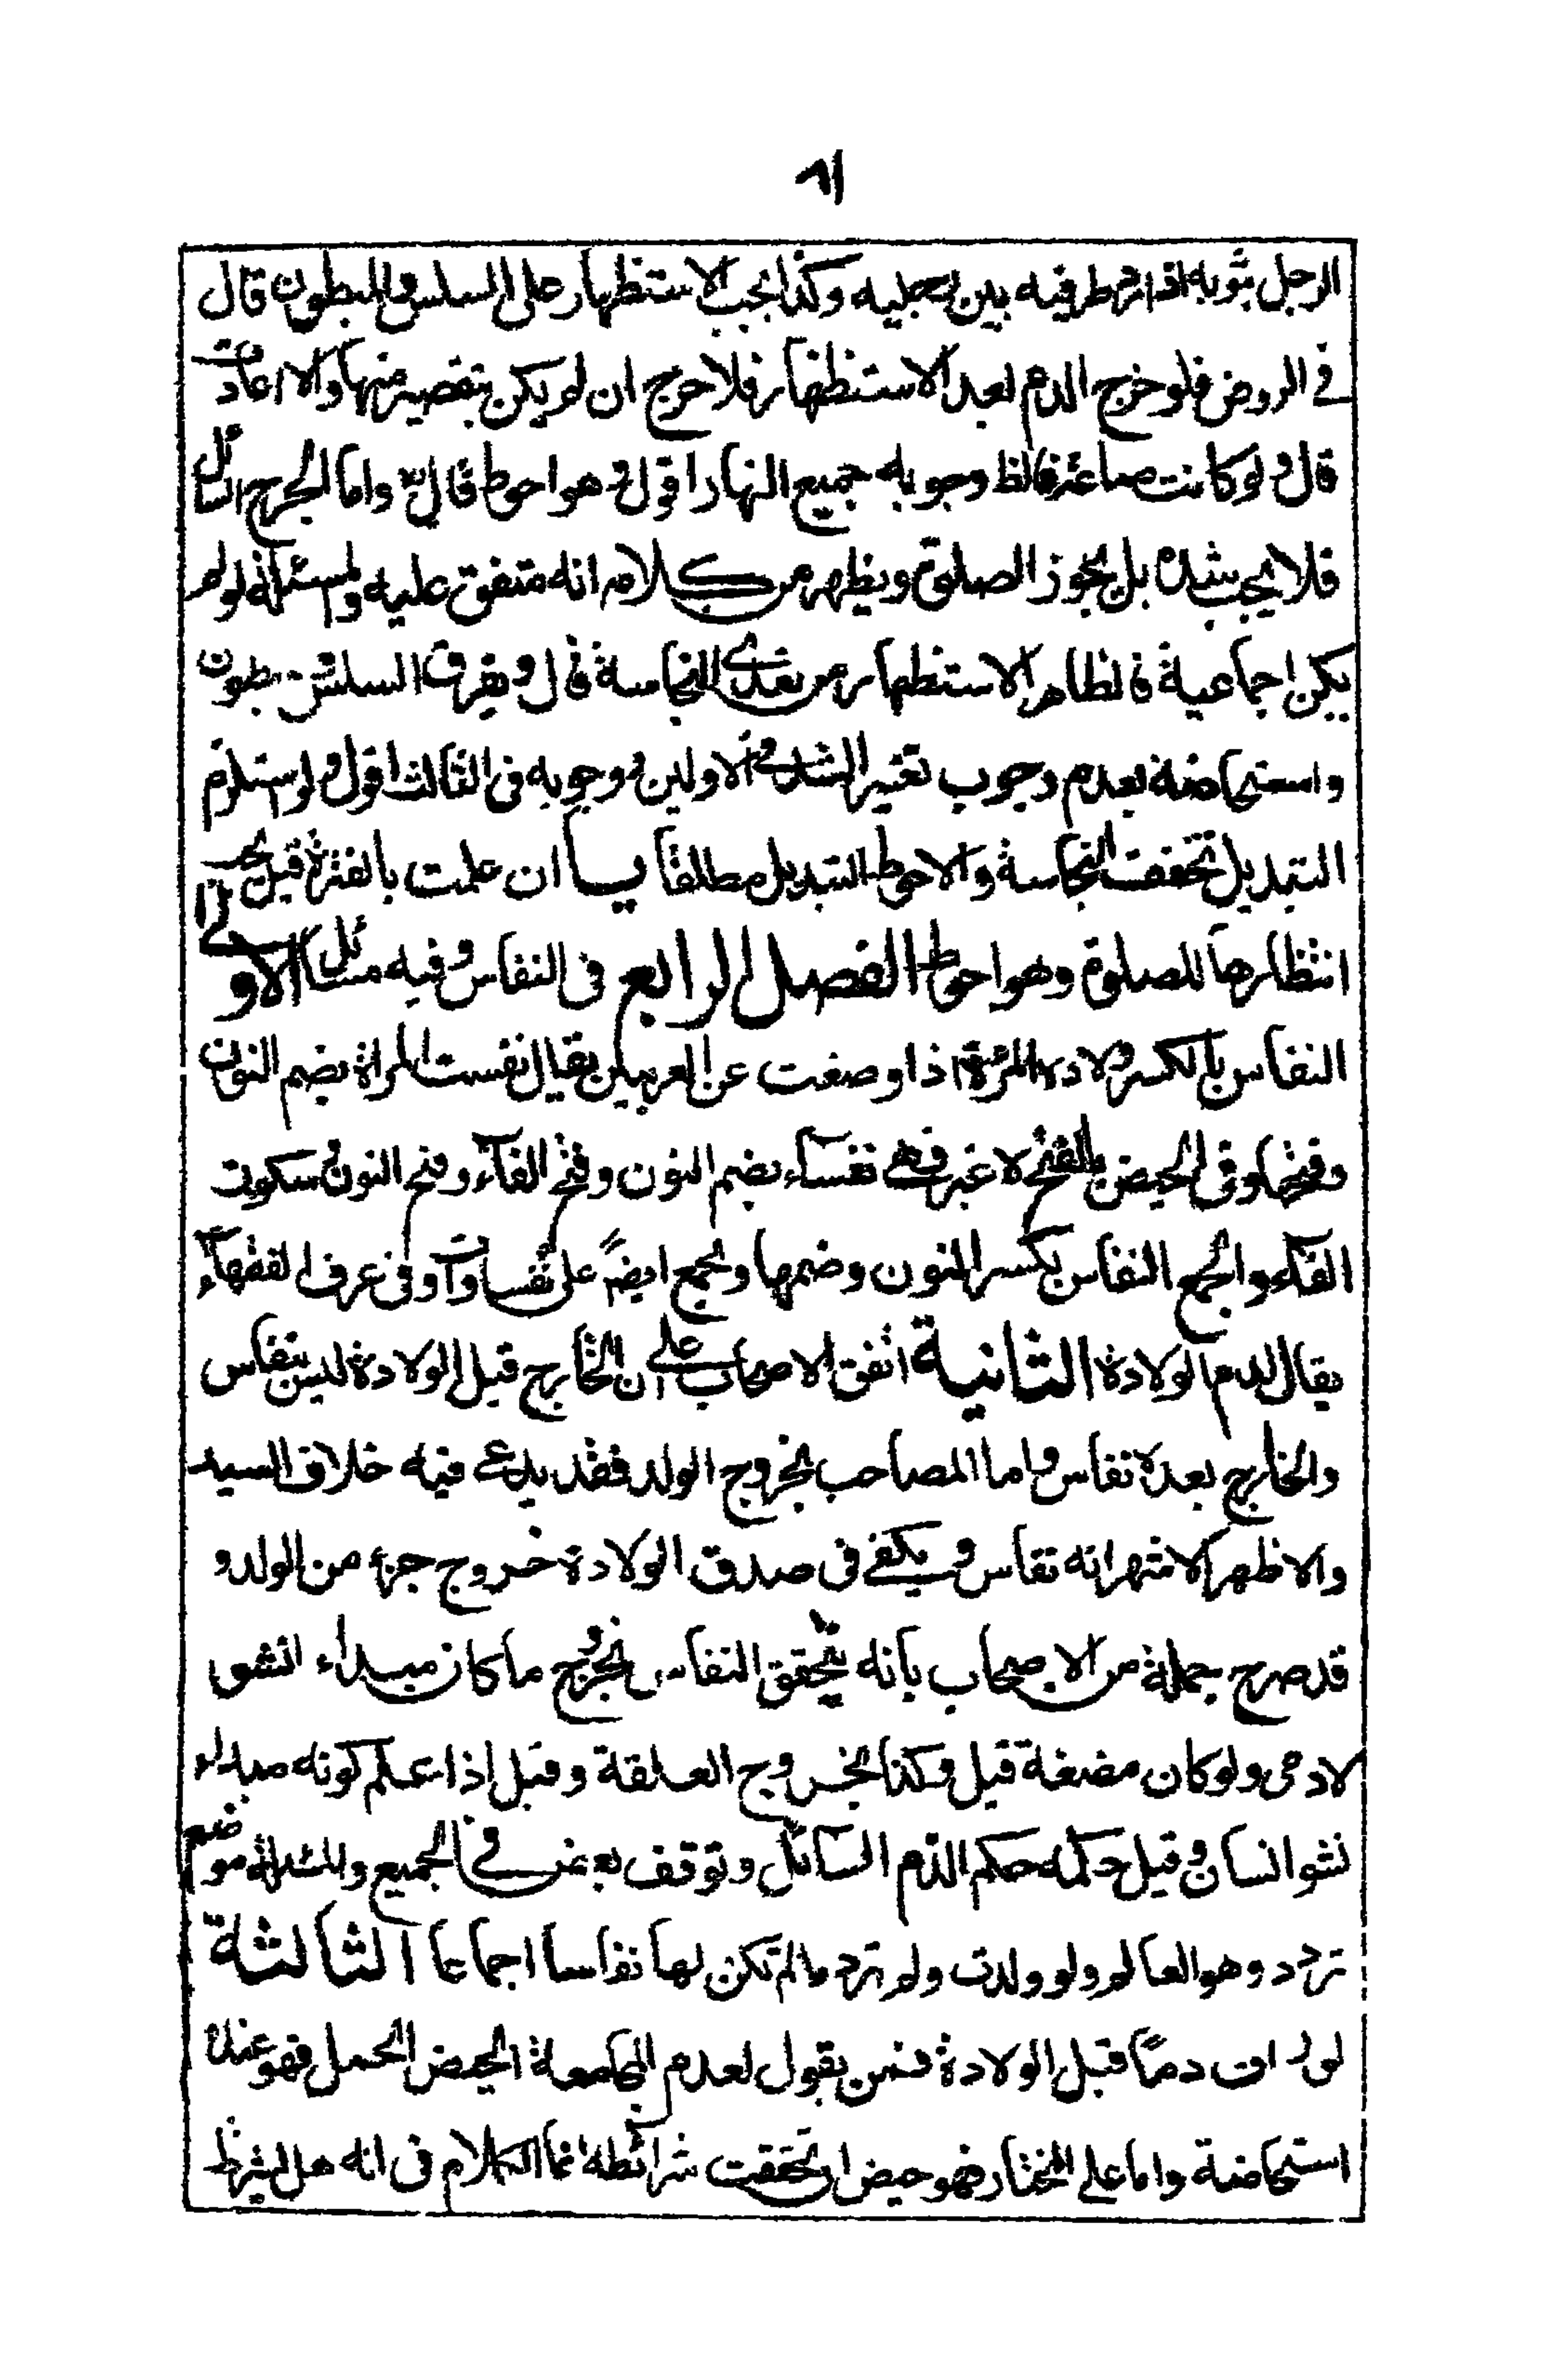 ٨١
الرجل بثوبه اذا رمى طرفيه بين رجليه وكذا يجب الاستظهار على السلس والمبطون قال
في الروض فلو خرج الدم بعد الاستظهار فلا حرج ان لم يكن بتقصير منها والا اعادت
قال ولو كانت صائمة فالظ وجوبه جميع النهار اقول وهو احوط قال واما الجرح السائل
فلا يجب شده بل يجوز الصلوة ويظهر من كلامه انه متفق عليه والمسئلة لو لم
يكن اجماعية فالظاهر الاستظهار من تعدى النجاسة قال ويفرق السلس بطون
واستحاضة بعدم وجوب تغيير الشداد في الاولين ووجوبه في الثالث اقول ولو استلزم
التبديل تخففت النجاسة والاحوط التبديل مطلقا يب ان علمت بالفترة قبل يجب
انتظارها للصلوة وهو احوط الفصل الرابع في النفاس وفيه مسائل الاولى
النفاس بالكسر ولادة المرئة اذا وضعت عن العربيين يقال نفست المراة بضم النون
وفتحها وفى الحيض بالفتح لا غير فهى نفساء بضم النون وفتح الفاء وفتح النون وسكون
الفاء والجمع النفاس بكسر النون وضمها ويجمع ايضً على نفساوات وفى عرف الفقهاء
يقال لدم الولادة الثانية اتفق الاصحاب على ان الخارج قبل الولادة ليس بنفاس
والخارج بعده نفاس واما المصاحب بخروج الولد فقد يدعى فيه خلاف السيد
والاظهر الاشهر انه نفاس ويكفى في صدق الولادة خروج جزء من الولد و
قد صرح جملة من الاصحاب بانه يتحقق النفاس بخروج ما كان مبداء النشو
لادمى ولو كان مضغة قيل وكذا بخروج العلقة وقيل اذا علم كونه مبداء
نشو انسان وقيل حكمه حكم الدم السائل وتوقف بعض في الجميع والمسئلة موضع
تردد وهو العالم ولو ولدت ولم تر دما لم تكن لها نفاسا اجماعا الثالثة
لو رات دماً قبل الولادة فمن يقول لعدم المجامعة الحيض الحمل فهو عنده
استحاضة واما على المختار فهو حيض ان تحققت شرائطه انما الكلام فى انه هل يشترط